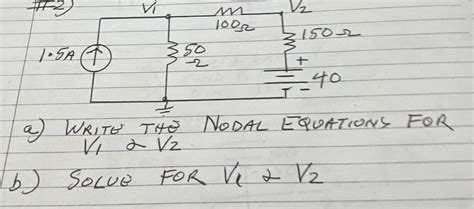 #2)
V1 V2
100Ω
150Ω
1.5A
50
Ω
+
40
-
a) WRITE THE NODAL EQUATIONS FOR
V1 & V2
b) SOLVE FOR V1 & V2